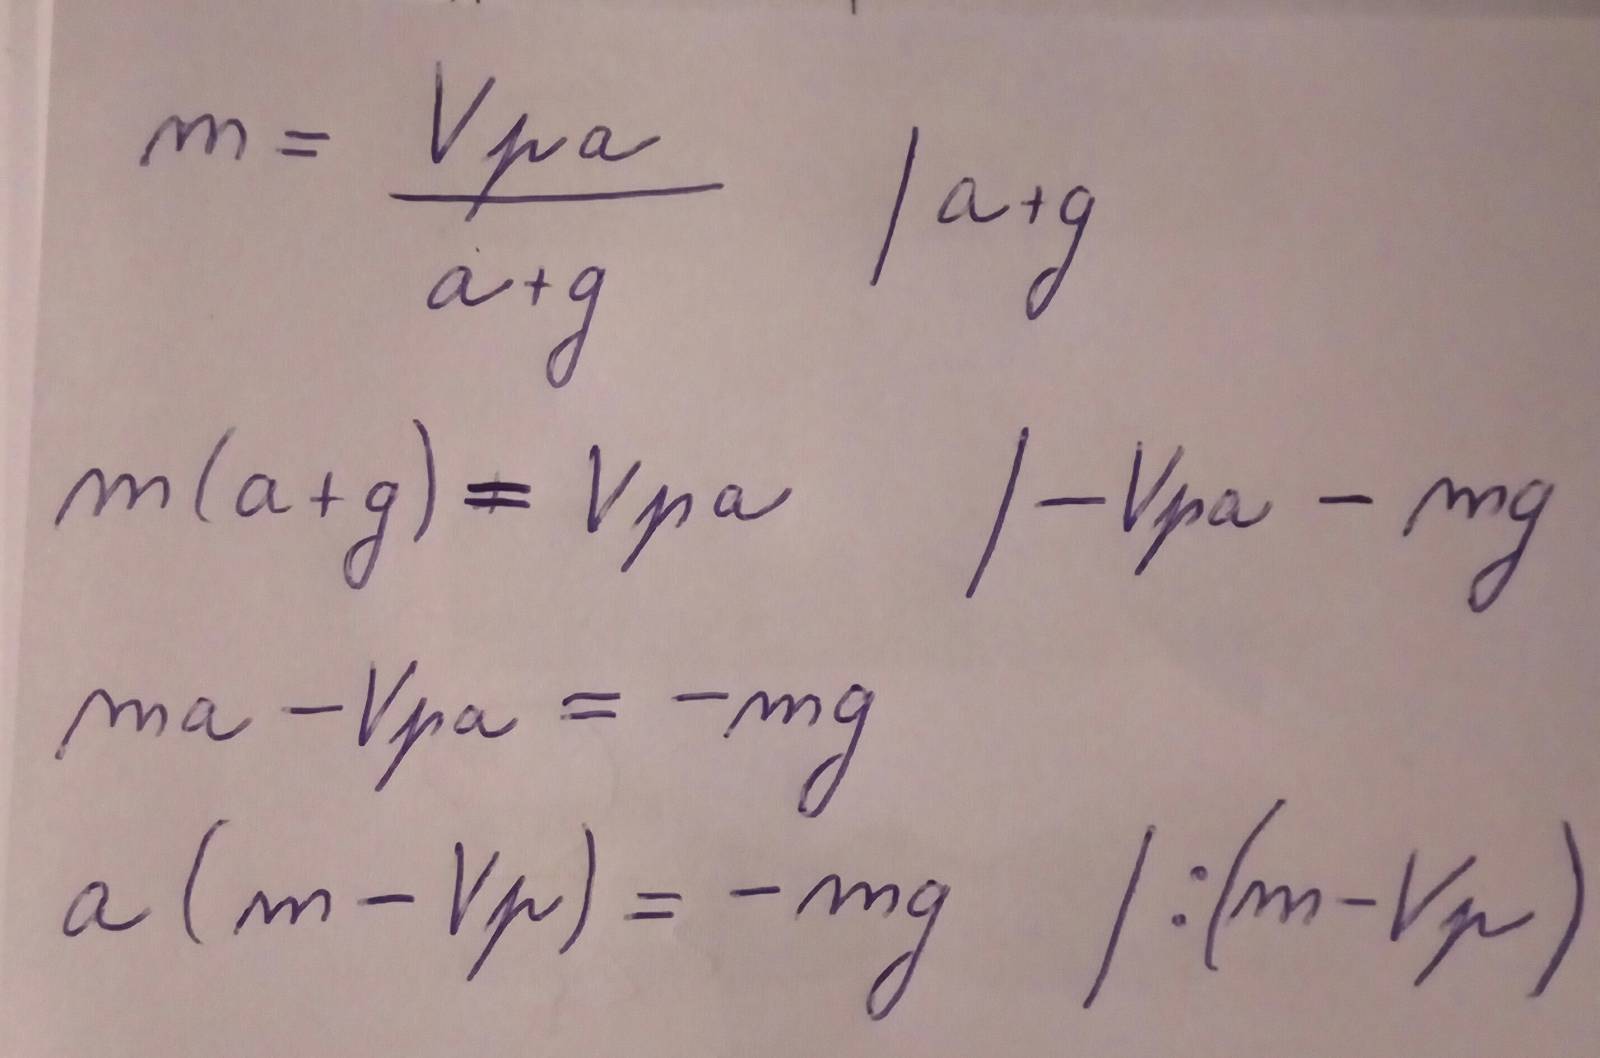 m = Vpa / a+g | a+g
m(a+g) = Vpa | -Vpa - mg
ma - Vpa = -mg
a(m - Vp) = -mg | :(m - Vp)